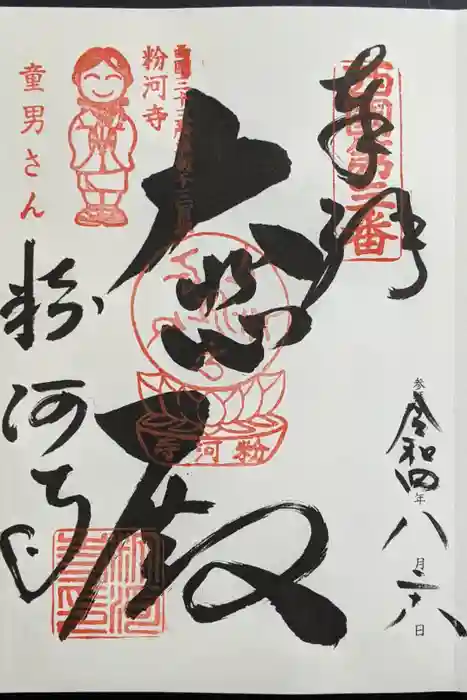 奉拝
西国第三番
参
令和四年八月二六日
大悲殿
西国三十三所
粉河寺
粉河寺
童男さん
粉河寺